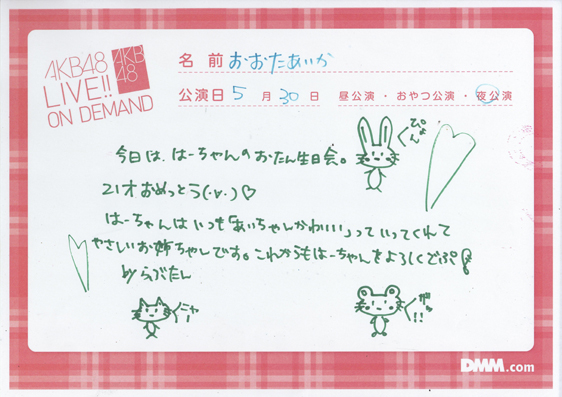 AKB48
LIVE!!
ON DEMAND
AKB
48
名 前 おおたあいか
公演日 5 月 30 日 昼公演 ・ おやつ公演 ・ 夜公演
ぴょん
今日は、はーちゃんのおたん生日会。
21才おめっとう(・v・)♡
はーちゃんはいつも「あいちゃんかわいい」っていってくれて
やさしいお姉ちゃんです。これからもはーちゃんをよろしくどぷ!
らぶたん
ニャー
ガォ!!
DMM.com